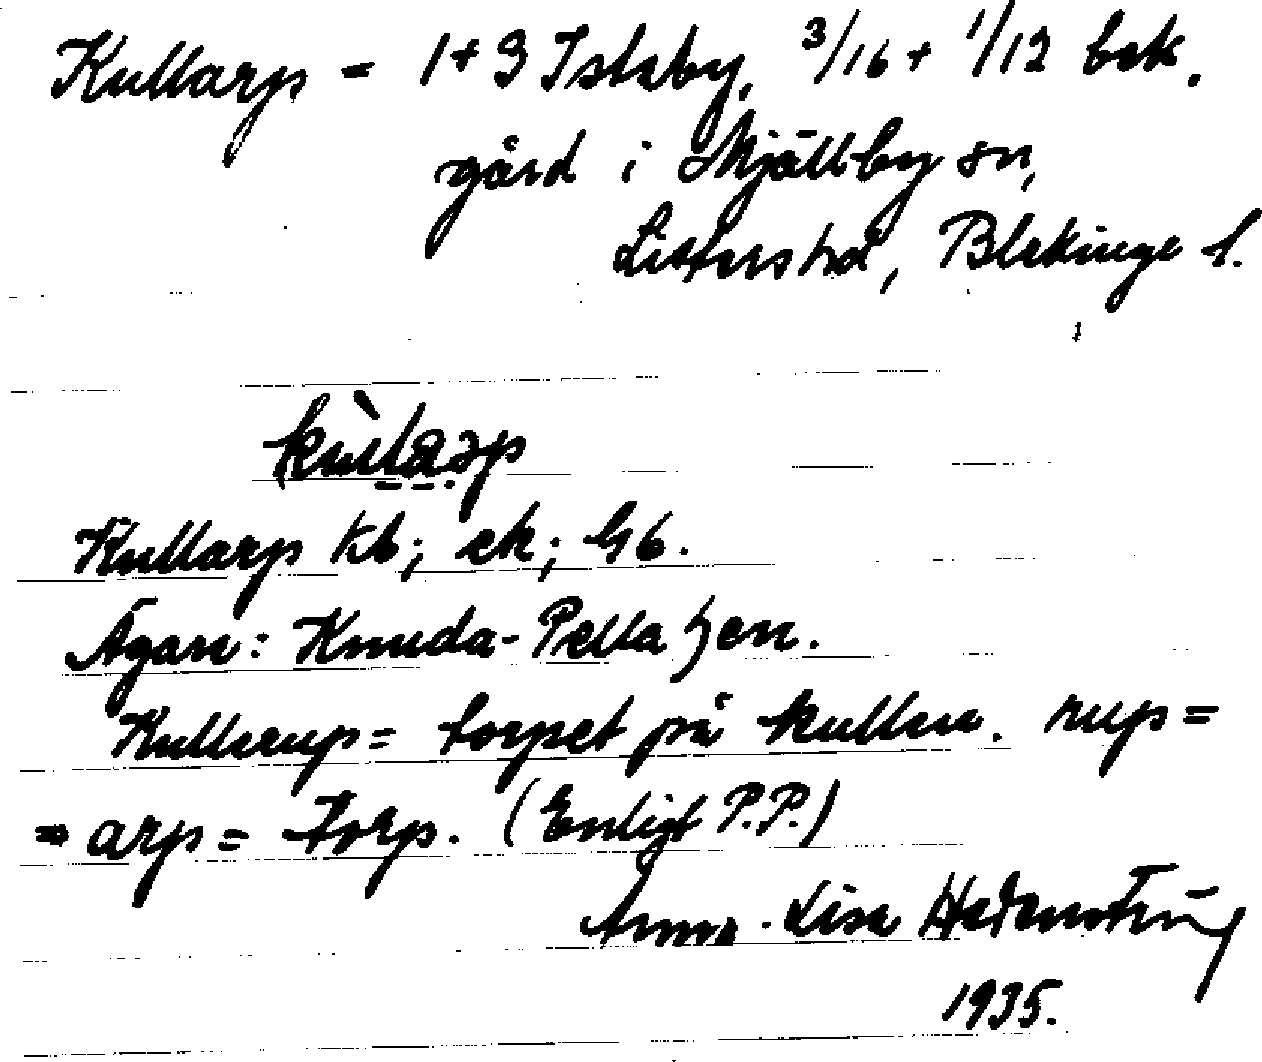 Kullarp = 1+3 Istaby, 3/16 + 1/12 bek.
gård i Mjällby sn,
Listers hd, Blekinge l.
kùlarp
Kullarp kb; ek; Gb.
Ägare: Knuda-Pella hen.
Kullerup = torpet på kullen. rup =
= arp = torp. (Enligt P.P.)
Anna-Lisa
1935.